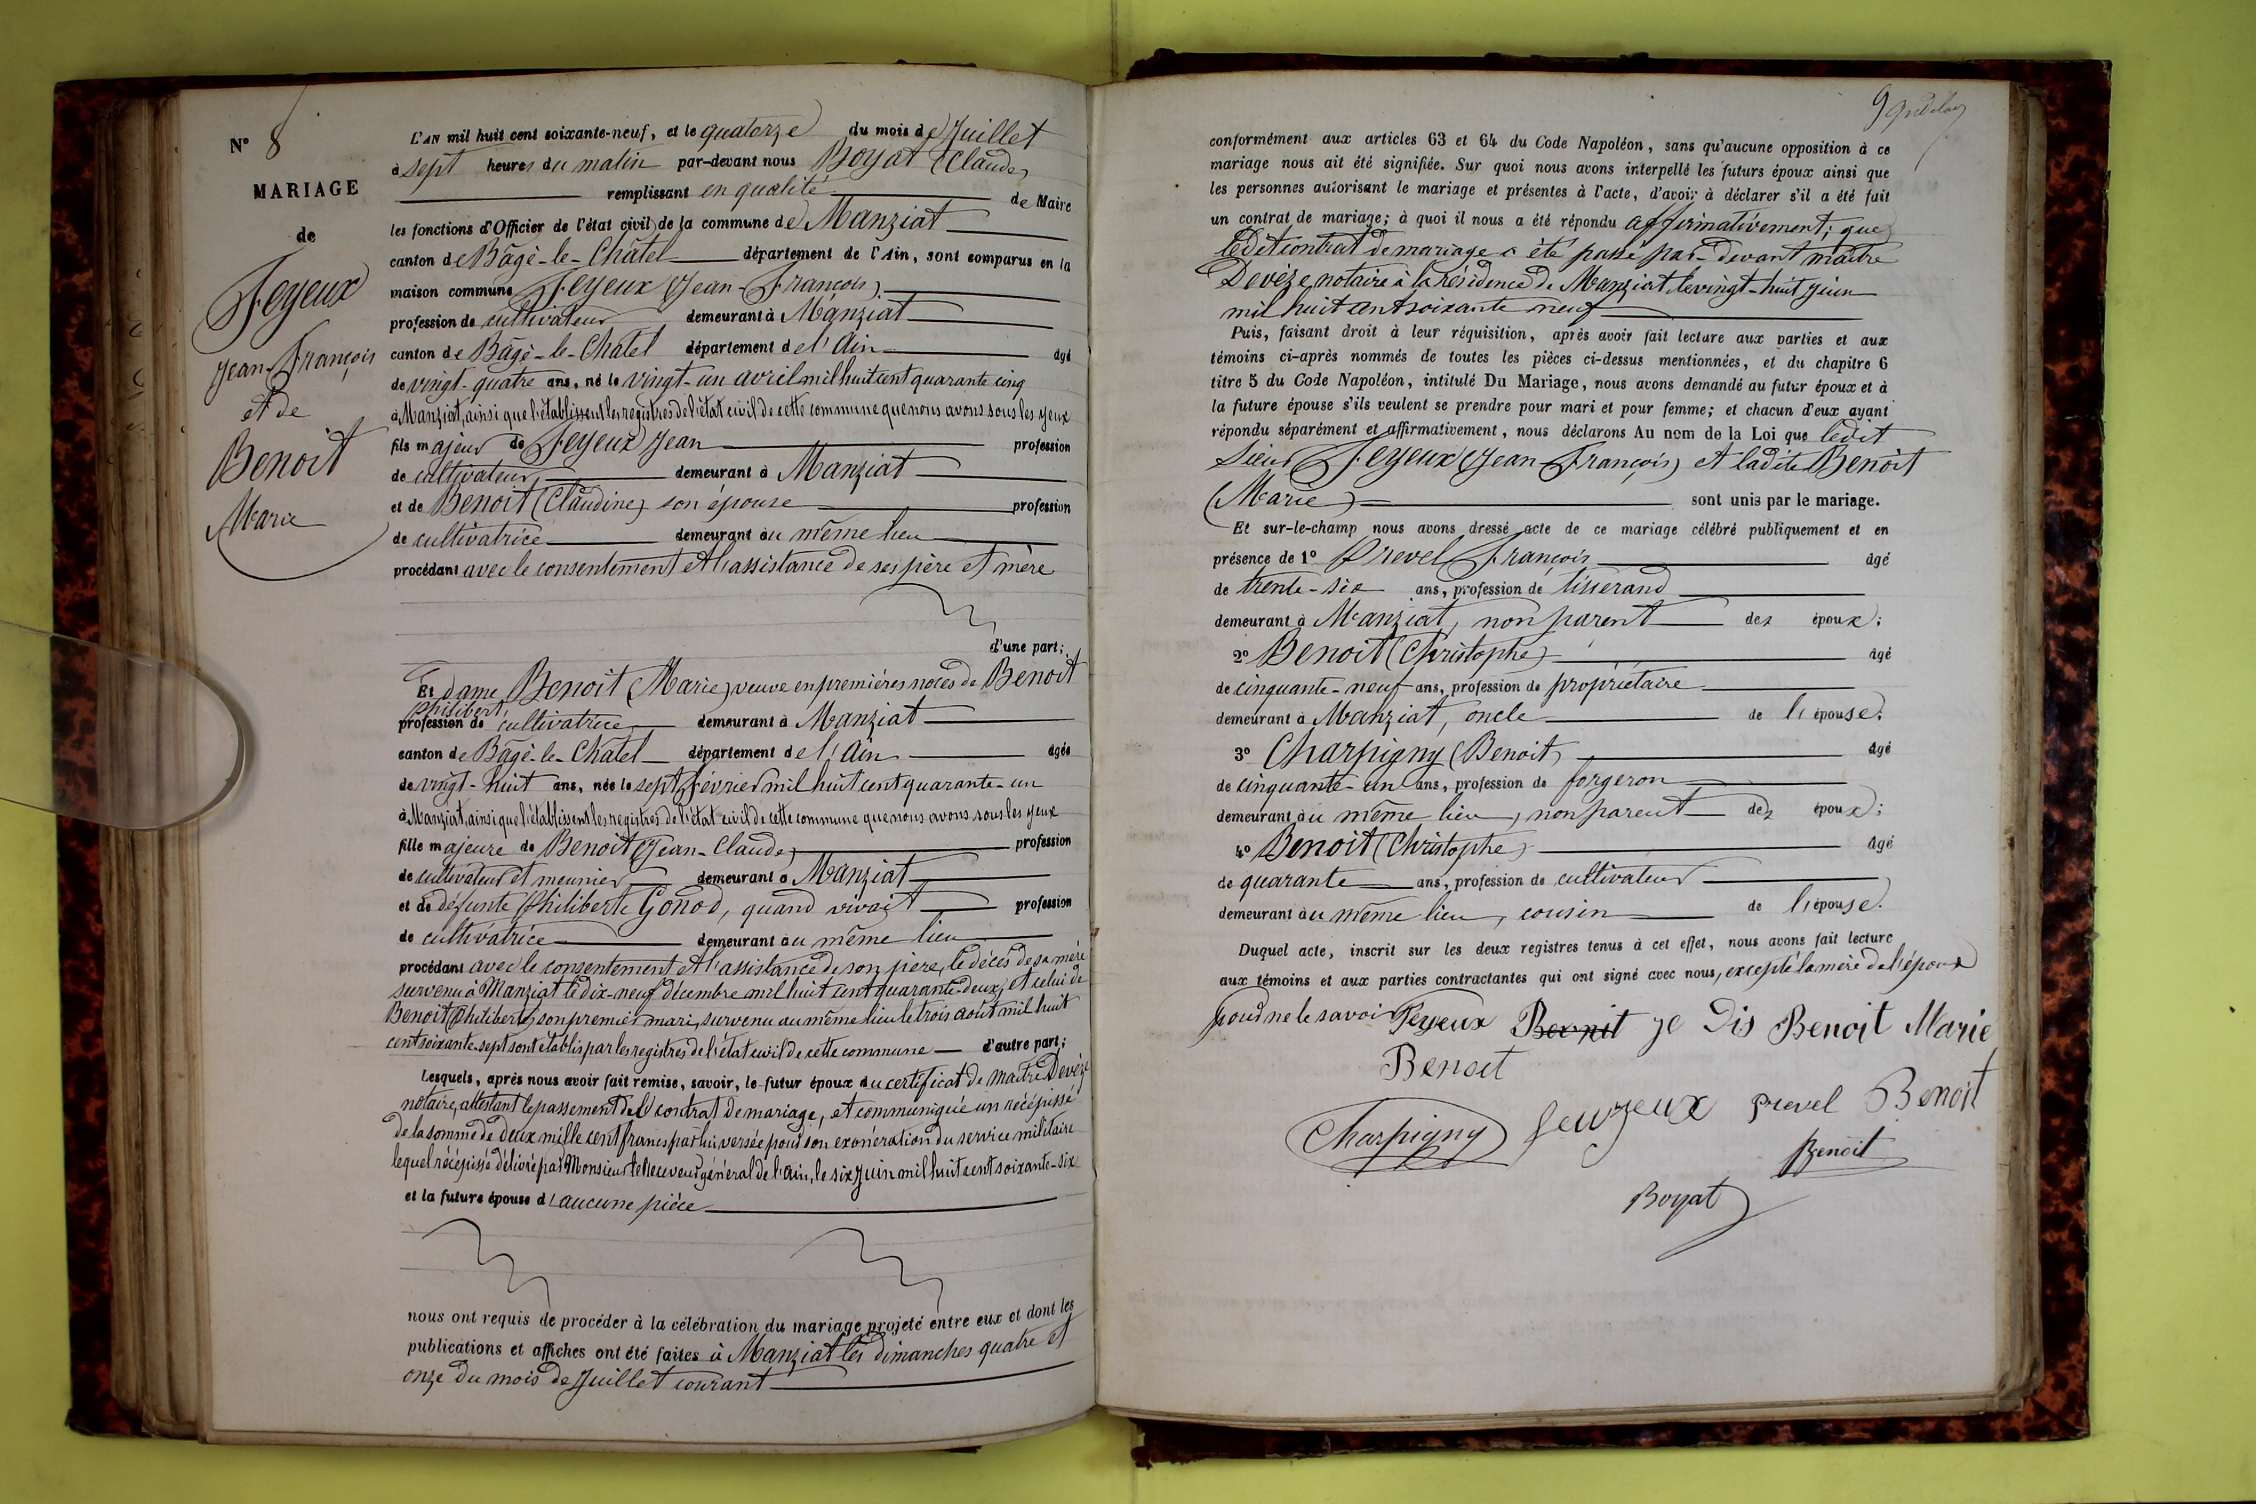 N° 8
MARIAGE
de
Feyeux
Jean-François
et de
Benoit
Marie
L'AN mil huit cent soixante-neuf, et le quatorze du mois de Juillet
à sept heures du matin par-devant nous Boyat (Claude)
remplissant en qualité de Maire
les fonctions d'Officier de l'état civil de la commune de Manziat
canton de Bâgé-le-Châtel département de l'Ain, sont comparus en la
maison commune Feyeux (Jean-François)
profession de cultivateur demeurant à Manziat
canton de Bâgé-le-Châtel département de l'Ain âgé
de vingt-quatre ans, né le vingt-un avril mil huit cent quarante cinq
à Manziat, ainsi que l'établissent les registres de l'état civil de cette commune que nous avons sous les yeux
fils majeur de Feyeux Jean profession
de cultivateur demeurant à Manziat
et de Benoit (Claudine) son épouse profession
de cultivatrice demeurant au même lieu
procédant avec le consentement et l'assistance de ses père et mère
d'une part;
Et dame Benoit (Marie) veuve en premières noces de Benoit
Philibert,
profession de cultivatrice demeurant à Manziat
canton de Bâgé-le-Châtel département de l'Ain âgée
de vingt-huit ans, née le sept février mil huit cent quarante-un
à Manziat, ainsi que l'établissent les registres de l'état civil de cette commune que nous avons sous les yeux
fille majeure de Benoit (Jean-Claude) profession
de cultivateur et meunier demeurant à Manziat
et de défunte Philiberte Gonod, quand vivait profession
de cultivatrice demeurant au même lieu
procédant avec le consentement et l'assistance de son père, le décès de sa mère
survenu à Manziat le dix-neuf décembre mil huit cent quarante-deux, et celui de
Benoit (Philibert) son premier mari, survenu au même lieu le trois août mil huit
cent soixante-sept sont établis par les registres de l'état civil de cette commune d'autre part;
Lesquels, après nous avoir fait remise, savoir, le futur époux du certificat de maître Devèze
notaire, attestant le passement de contrat de mariage, et communiqué un récépissé
de la somme de deux mille cent francs par lui versée pour son exonération du service militaire
lequel récépissé délivré par Monsieur le Receveur général de l'Ain, le six Juin mil huit cent soixante-six
et la future épouse d'aucune pièce
nous ont requis de procéder à la célébration du mariage projeté entre eux et dont les
publications et affiches ont été faites à Manziat les dimanches quatre et
onze du mois de Juillet courant
9
conformément aux articles 63 et 64 du Code Napoléon, sans qu'aucune opposition à ce
mariage nous ait été signifiée. Sur quoi nous avons interpellé les futurs époux ainsi que
les personnes autorisant le mariage et présentes à l'acte, d'avoir à déclarer s'il a été fait
un contrat de mariage; à quoi il nous a été répondu affirmativement; que
ledit contrat de mariage a été passé par-devant maître
Devèze, notaire à la résidence de Manziat le vingt-huit Juin
mil huit cent soixante neuf
Puis, faisant droit à leur réquisition, après avoir fait lecture aux parties et aux
témoins ci-après nommés de toutes les pièces ci-dessus mentionnées, et du chapitre 6
titre 5 du Code Napoléon, intitulé Du Mariage, nous avons demandé au futur époux et à
la future épouse s'ils veulent se prendre pour mari et pour femme; et chacun d'eux ayant
répondu séparément et affirmativement, nous déclarons Au nom de la Loi que ledit
Sieur Feyeux (Jean-François) et ladite Benoit
(Marie) sont unis par le mariage.
Et sur-le-champ nous avons dressé acte de ce mariage célébré publiquement et en
présence de 1° Prevel François âgé
de trente-six ans, profession de tisserand
demeurant à Manziat, non parent des époux;
2° Benoit (Christophe) âgé
de cinquante-neuf ans, profession de propriétaire
demeurant à Manziat, oncle de l'épouse;
3° Charpigny (Benoit) âgé
de cinquante-un ans, profession de forgeron
demeurant au même lieu, non parent des époux;
4° Benoit (Christophe) âgé
de quarante ans, profession de cultivateur
demeurant au même lieu, cousin de l'épouse.
Duquel acte, inscrit sur les deux registres tenus à cet effet, nous avons fait lecture
aux témoins et aux parties contractantes qui ont signé avec nous, excepté la mère de l'époux
pour ne le savoir Feyeux Benoit je dis Benoit Marie
Benoit
Charpigny feuyeux prevel Benoit
Benoit
Boyat